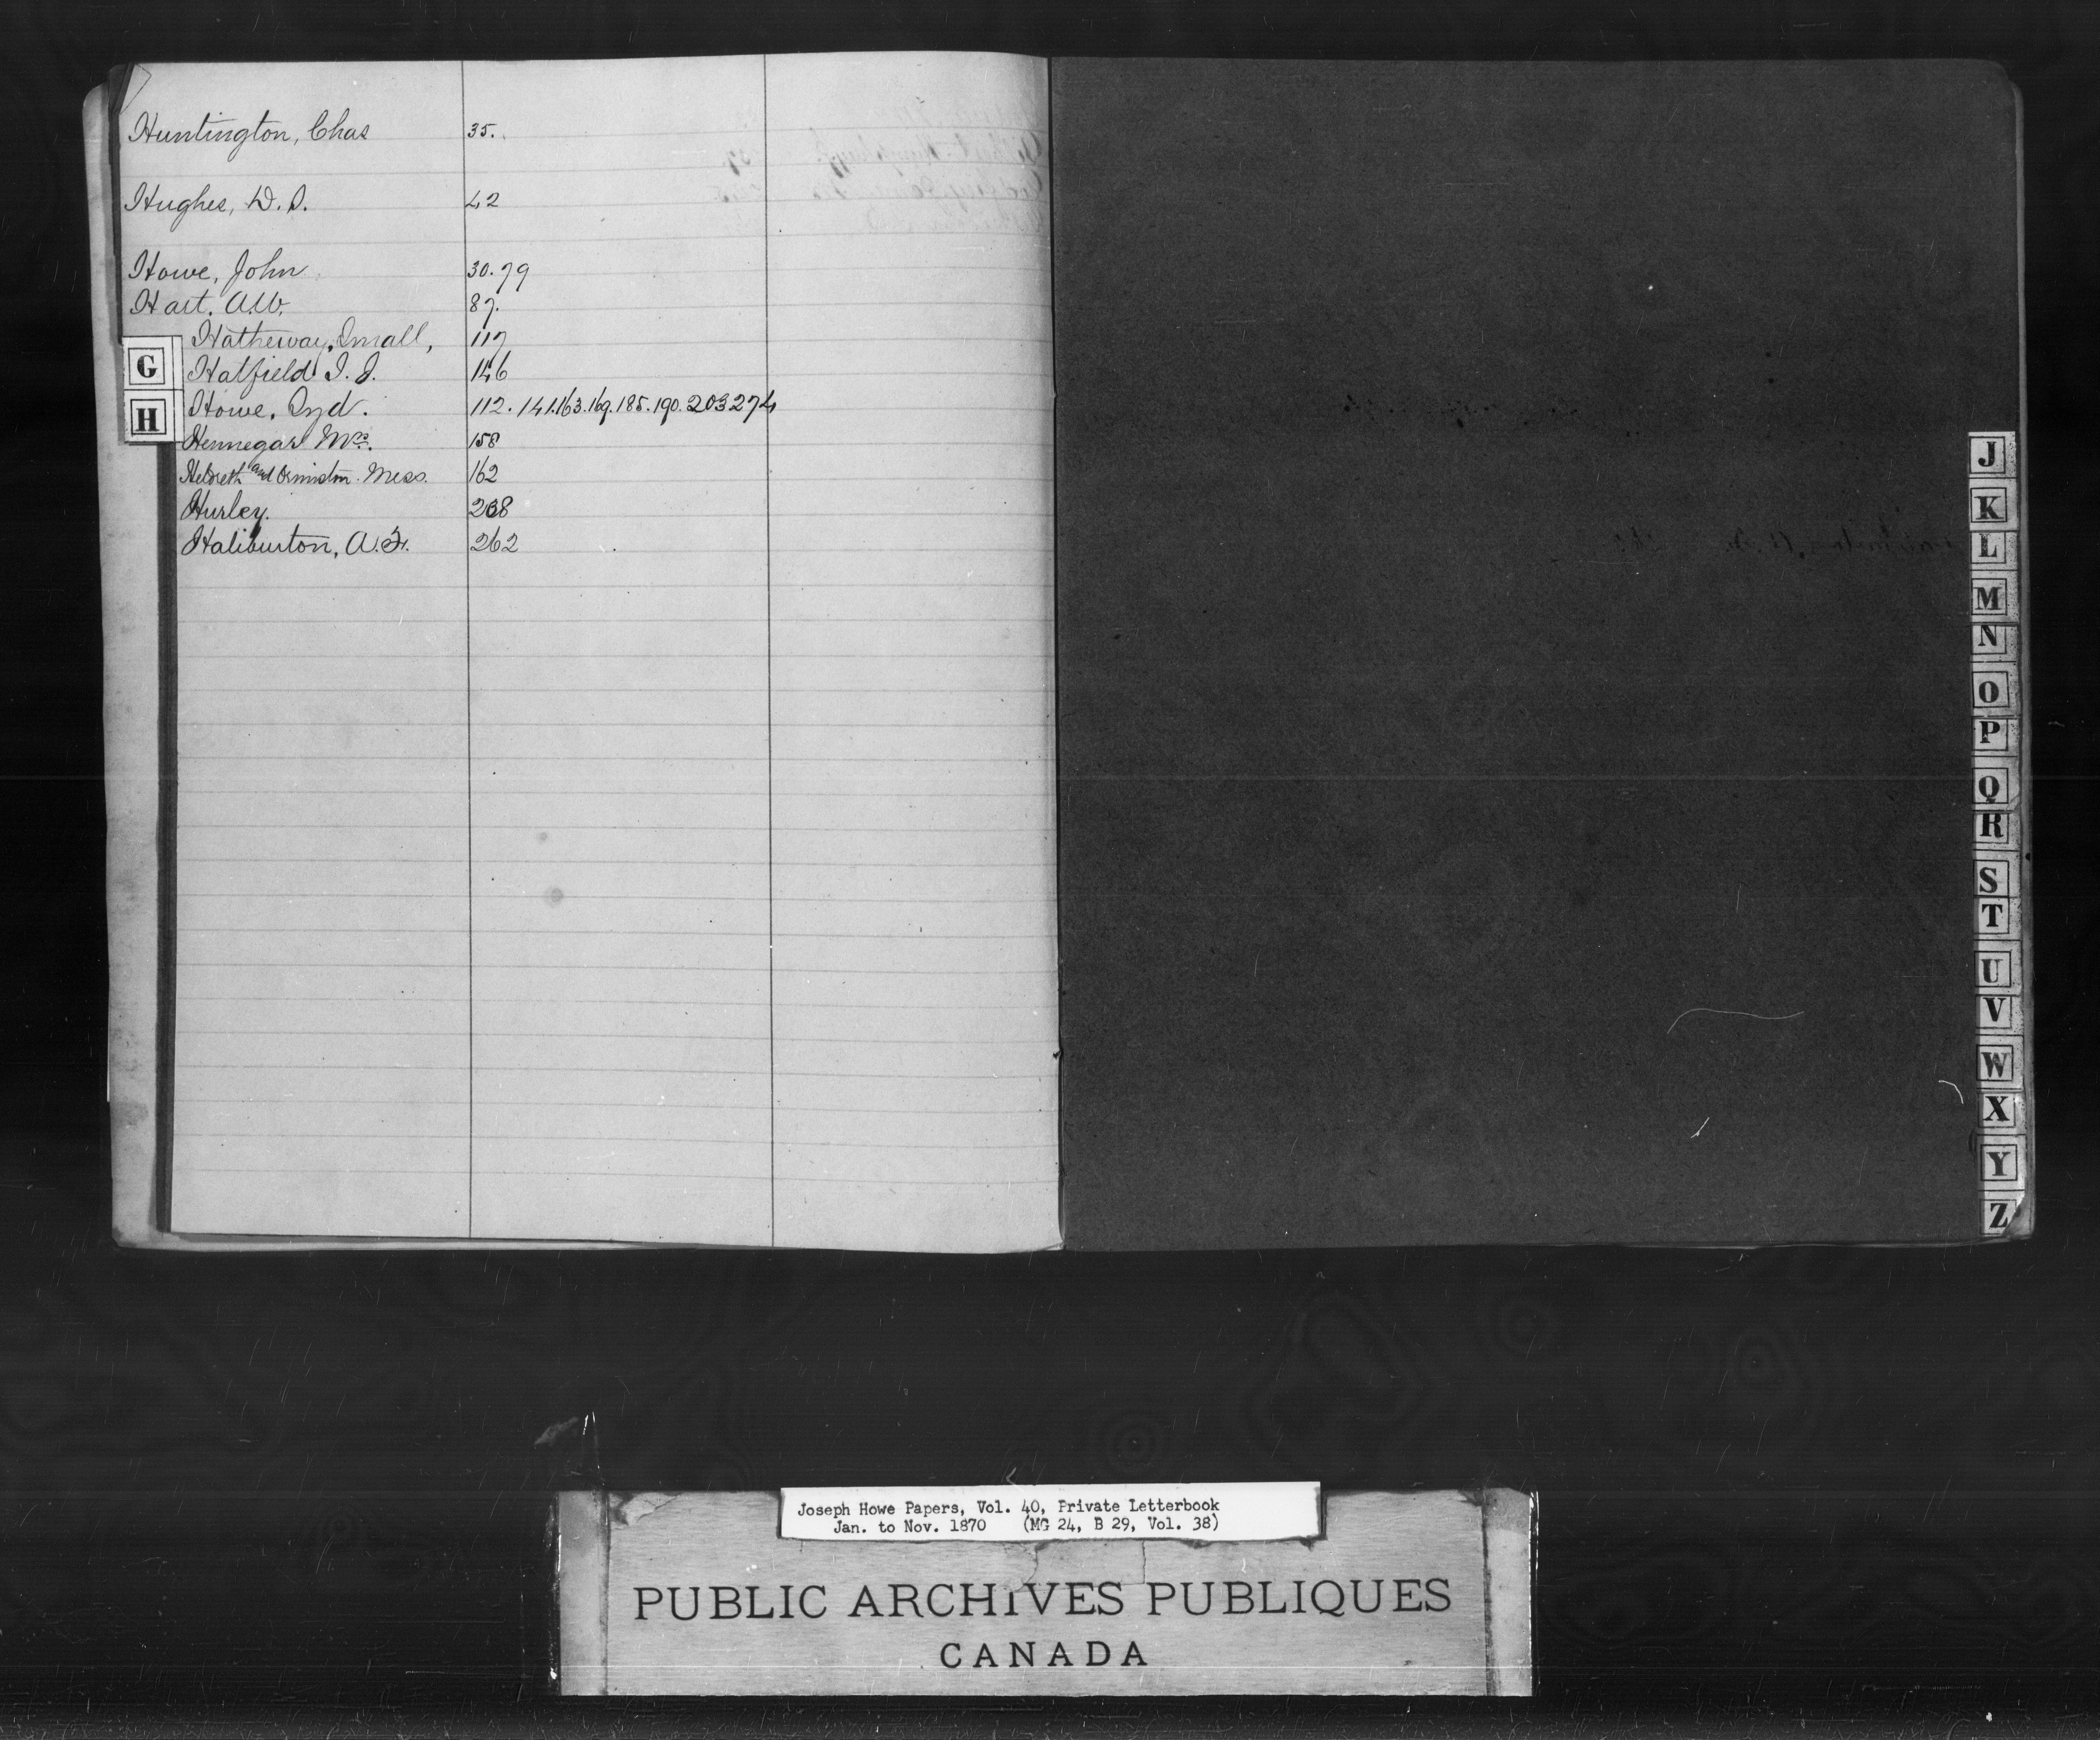 Huntington, Chas 35.
Hughes, D. S. 42
Howe, John 30. 79
Hart. A.W. 87.
Hatheway, Small, 117
Hatfield I. J. 146
Howe, Syd. 112. 141.163.169.185.190.203 274
Hennegar Mrs. 158
and Ormiston. Mess. 162
Hurley. 208
Haliburton, A. F. 262
G
H
J
K
L
M
N
O
P
Q
R
S
T
U
V
W
X
Y
Z
Joseph Howe Papers, Vol. 40, Private Letterbook
Jan. to Nov. 1870 (MG 24, B 29, Vol. 38)
PUBLIC ARCHIVES PUBLIQUES
CANADA